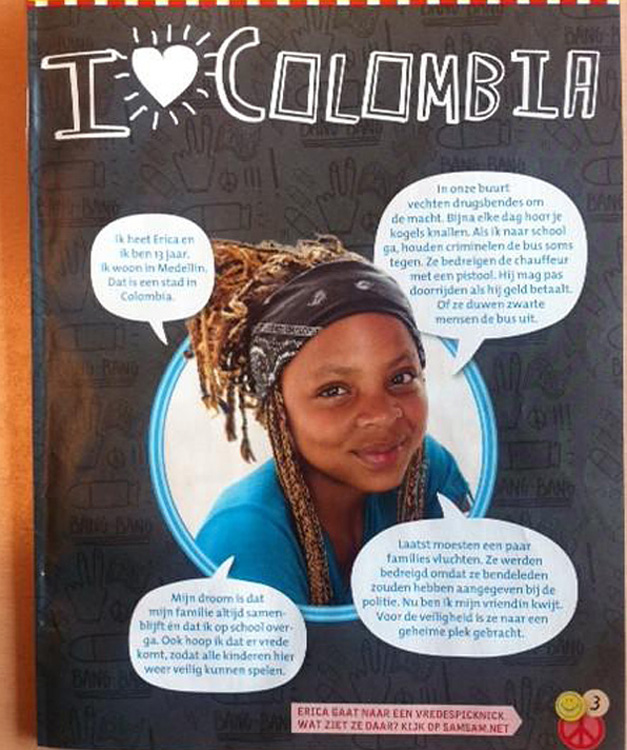 I ♥ COLOMBIA
Ik heet Erica en
ik ben 13 jaar.
Ik woon in Medellin.
Dat is een stad in
Colombia.
In onze buurt
vechten drugsbendes om
de macht. Bijna elke dag hoor je
kogels knallen. Als ik naar school
ga, houden criminelen de bus soms
tegen. Ze bedreigen de chauffeur
met een pistool. Hij mag pas
doorrijden als hij geld betaalt.
Of ze duwen zwarte
mensen de bus uit.
Laatst moesten een paar
families vluchten. Ze werden
bedreigd omdat ze bendeleden
zouden hebben aangegeven bij de
politie. Nu ben ik mijn vriendin kwijt.
Voor de veiligheid is ze naar een
geheime plek gebracht.
Mijn droom is dat
mijn familie altijd samen-
blijft én dat ik op school over-
ga. Ook hoop ik dat er vrede
komt, zodat alle kinderen hier
weer veilig kunnen spelen.
ERICA GAAT NAAR EEN VREDESPICKNICK.
WAT ZIET ZE DAAR? KIJK OP SAMSAM.NET
3
BANG-BANG
BANG-BANG
BANG-BANG
BANG-BANG
BANG-BANG